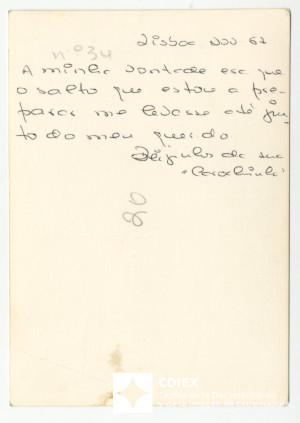 Lisboa Nov 62
nº 34
A minha vontade era que
o salto que estou a pre-
parar me levasse até jun-
to do meu querido
Beijinhos da sua
"Carochinha"
80
CDTEX